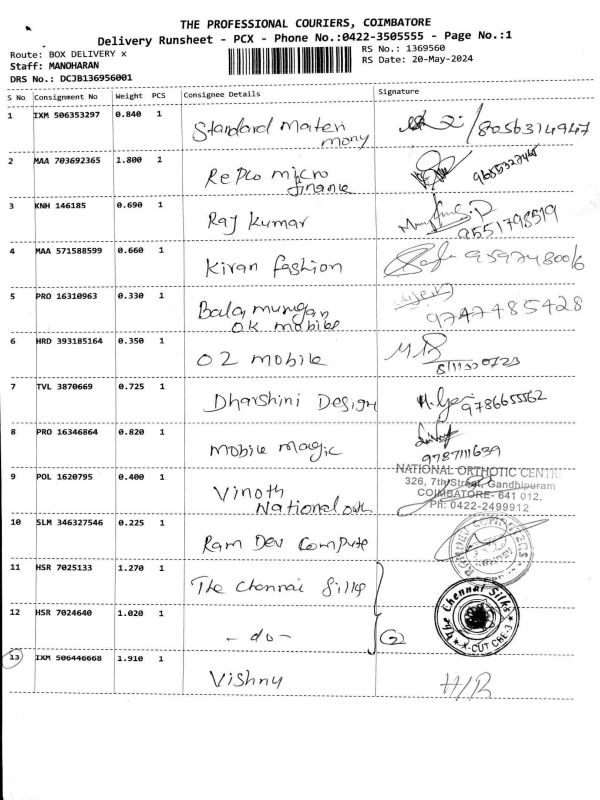 THE PROFESSIONAL COURIERS, COIMBATORE
Delivery Runsheet - PCX - Phone No.:0422-3505555 - Page No.:1
Route: BOX DELIVERY x
RS No.: 1369560
Staff: MANOHARAN
RS Date: 20-May-2024
DRS No.: DCJB136956001
S No Consignment No Weight PCS Consignee Details Signature
1 IXM 506353297 0.840 1 Standard Materi
mony
/8056314947
2 MAA 703692365 1.800 1 Repco micro
finance
3 KNH 146185 0.690 1 Raj Kumar
9551798519
4 MAA 571588599 0.660 1 Kiran fashion
9597480016
5 PRO 16310963 0.330 1 Bala murugan
OK mobiles
9747485428
6 HRD 393185164 0.350 1 O2 mobile
7 TVL 3870669 0.725 1 Dharshini Design
9786655562
8 PRO 16346864 0.820 1 mobile magic
9787111639
9 POL 1620795 0.400 1 Vinoth
National
NATIONAL ORTHOTIC CENTRE
326, 7th Street, Gandhipuram
COIMBATORE- 641 012.
Ph: 0422-2499912
10 SLM 346327546 0.225 1 Ram Dev Compute
11 HSR 7025133 1.270 1 The Chennai Silks
12 HSR 7024640 1.020 1 - do -
2
The Chennai Silks
X-CUT CBE-3
13 IXM 506446668 1.910 1 Vishnu
H/R